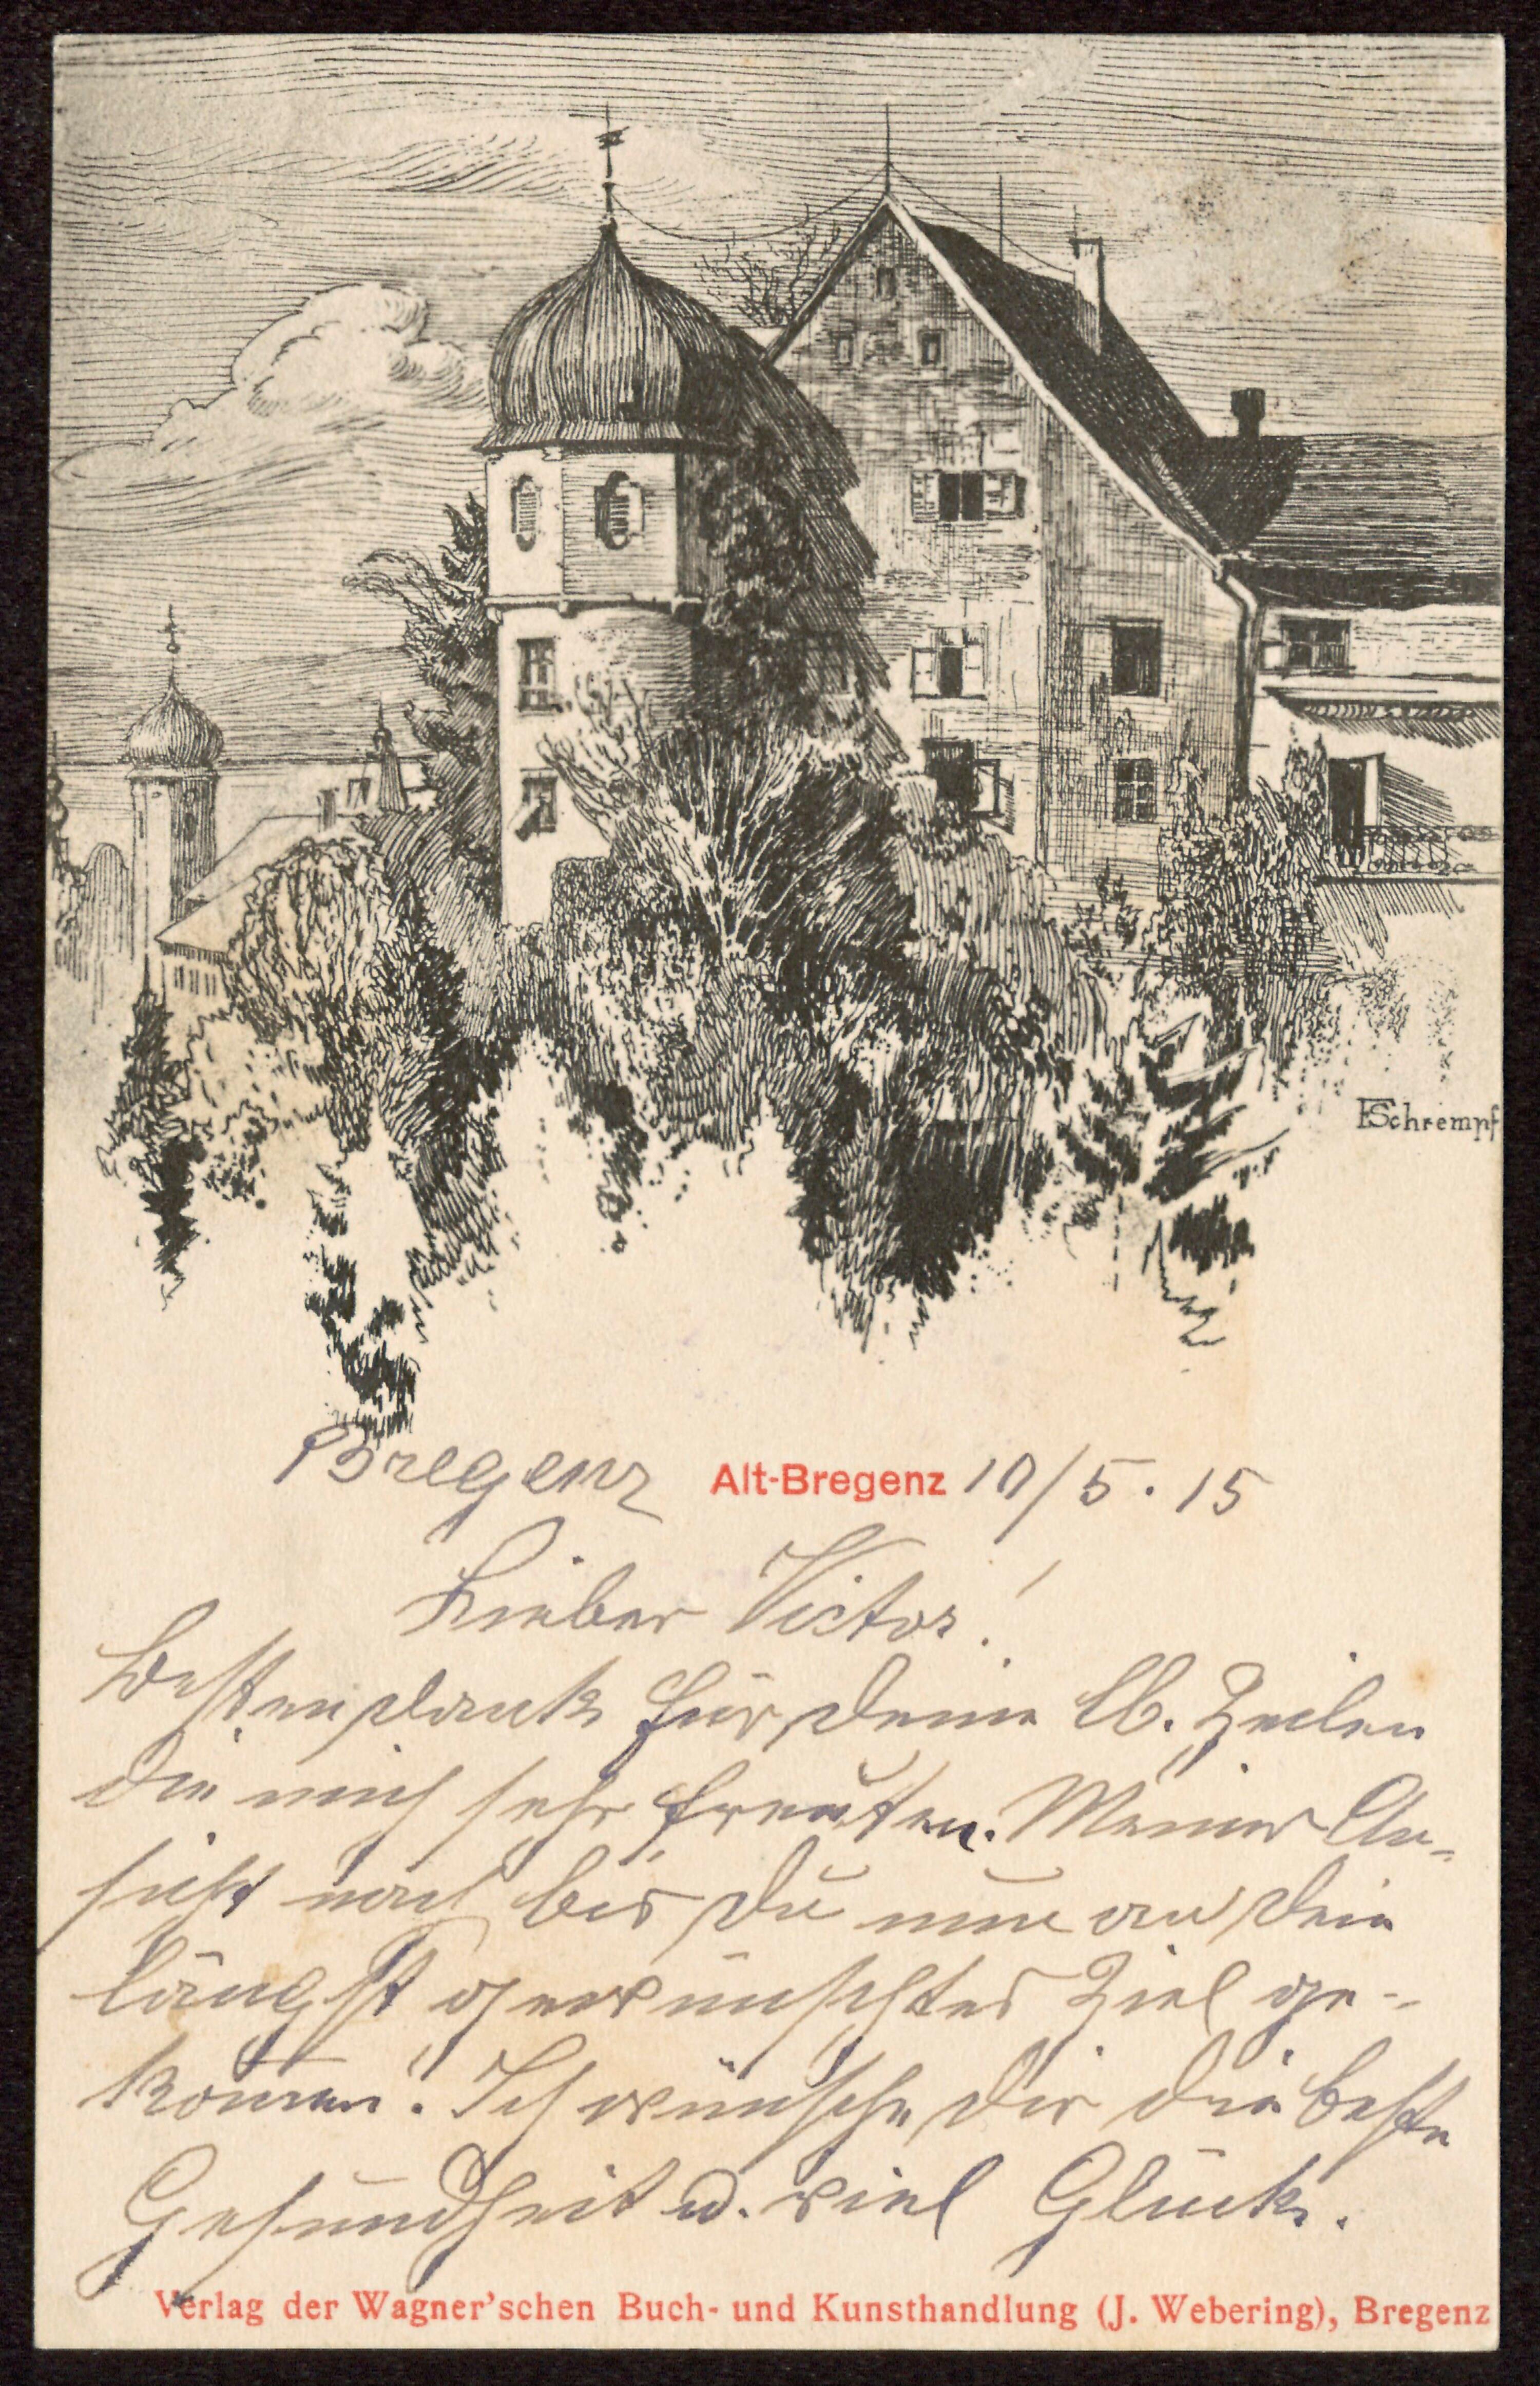 FSchrempf
Bregenz Alt-Bregenz 10/5.15
Lieber Victor!
Besten Dank für Deine lb. Zeilen
die mich sehr freuten. Meiner An-
sicht nach bis Du nun an Dein
längst gewünschtes Ziel ge-
kom̅en. Ich wünsche Dir die beste
Gesundheit u. viel Glück.
Verlag der Wagner'schen Buch- und Kunsthandlung (J. Webering), Bregenz